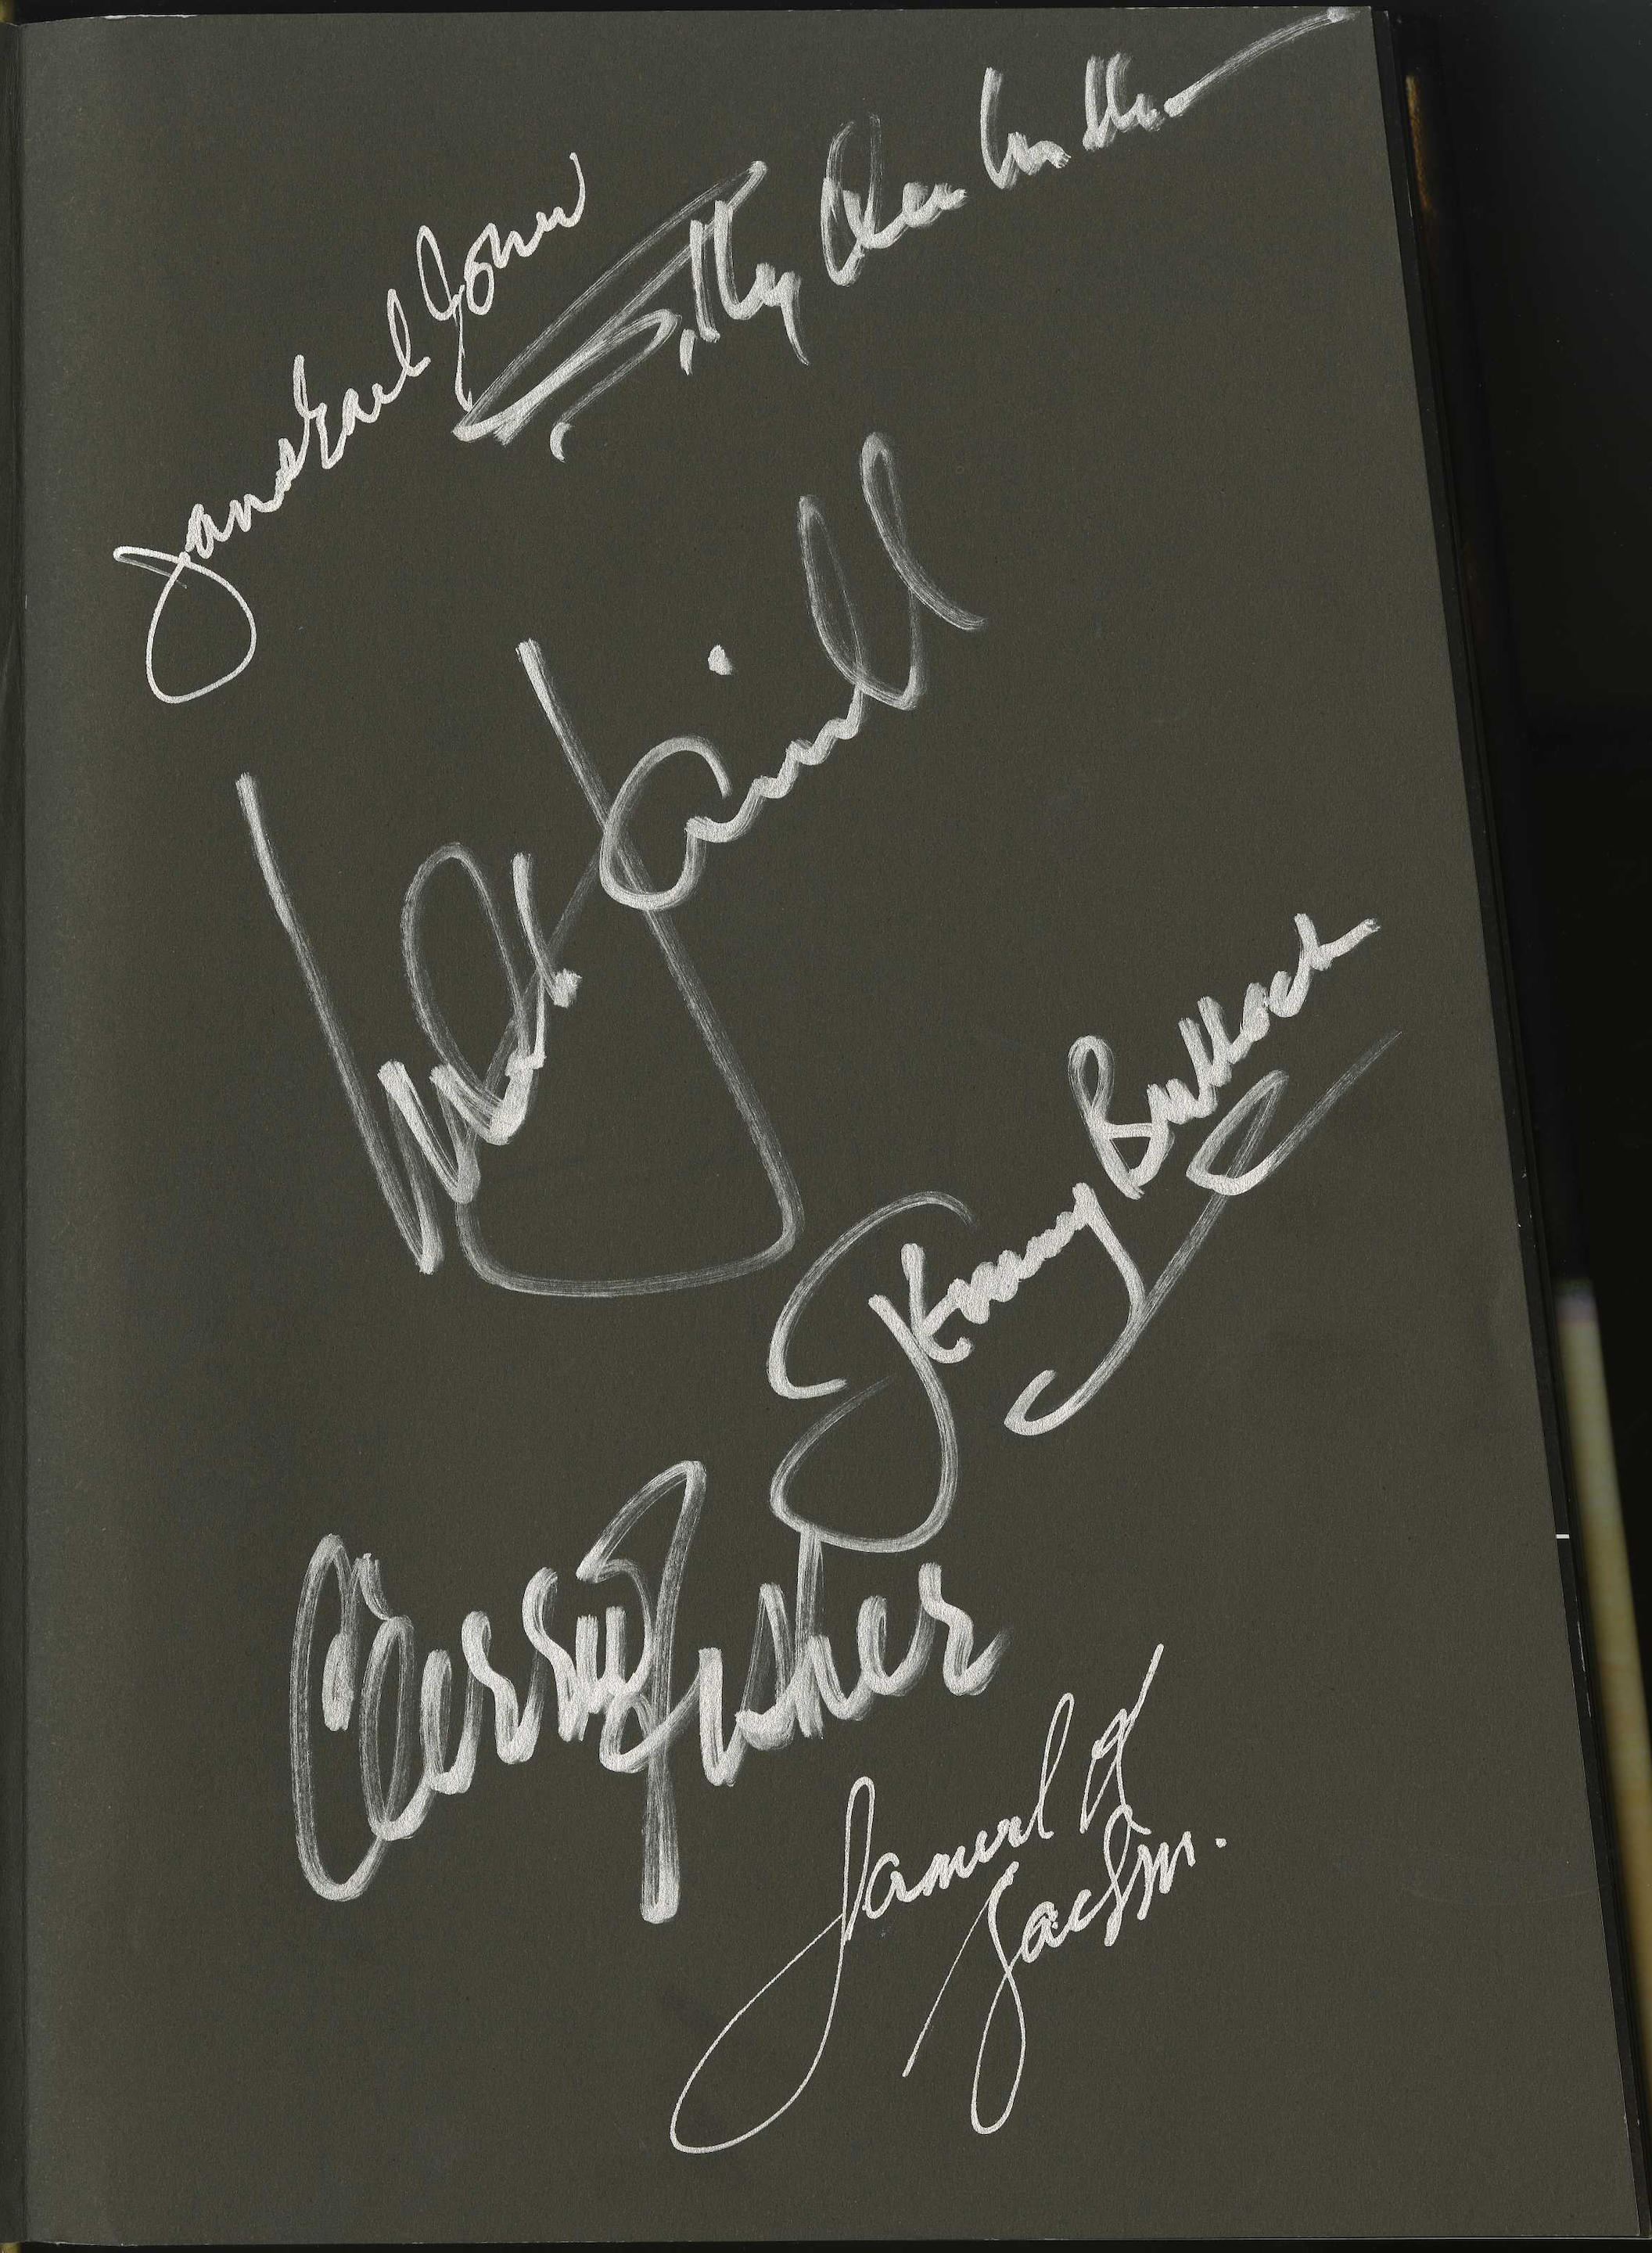 James Earl Jones
Billy Dee Williams
Mark Hamill
Jeremy Bulloch
Carrie Fisher
Samuel L
Jackson.